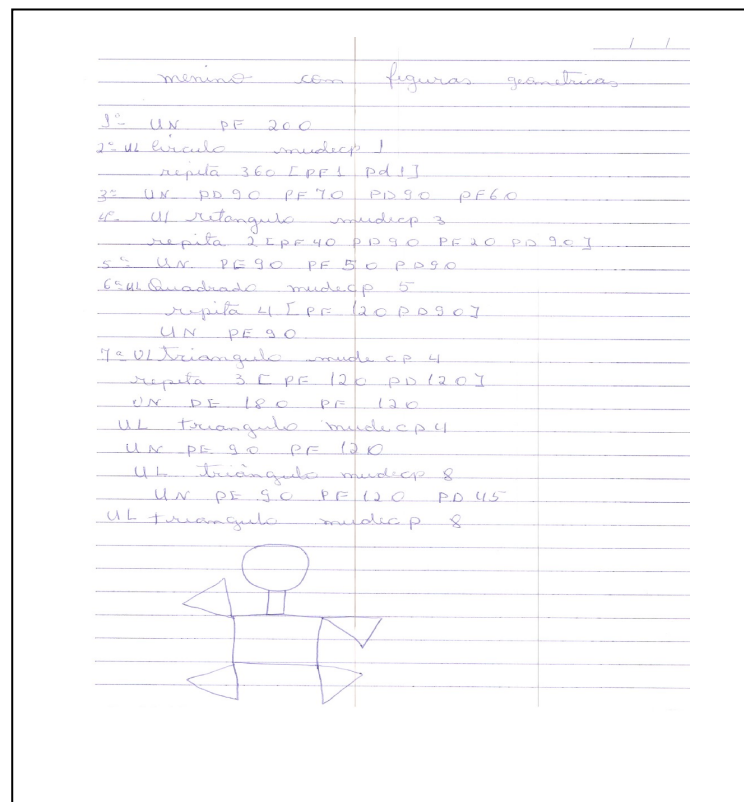 / /
menino com figuras geometricas
1º UN PF 200
2º UL Circulo mudecp 1
repita 360 [PF1 Pd1]
3º UN PD90 PF70 PD90 PF60
4º Ul retangulo mudecp 3
repita 2[PF40 PD90 PF20 PD90]
5º UN PE90 PF50 PD90
6º UL Quadrado mudecp 5
repita 4 [PF 120 PD90]
UN PE90
7º UL triangulo mude cp 4
repita 3 [PF 120 PD120]
UN PE 180 PF 120
UL triangulo mudecp 4
UN PE 90 PF 120
UL triângulo mudecp 8
UN PE 90 PF 120 PD 45
UL triangulo mudecp 8